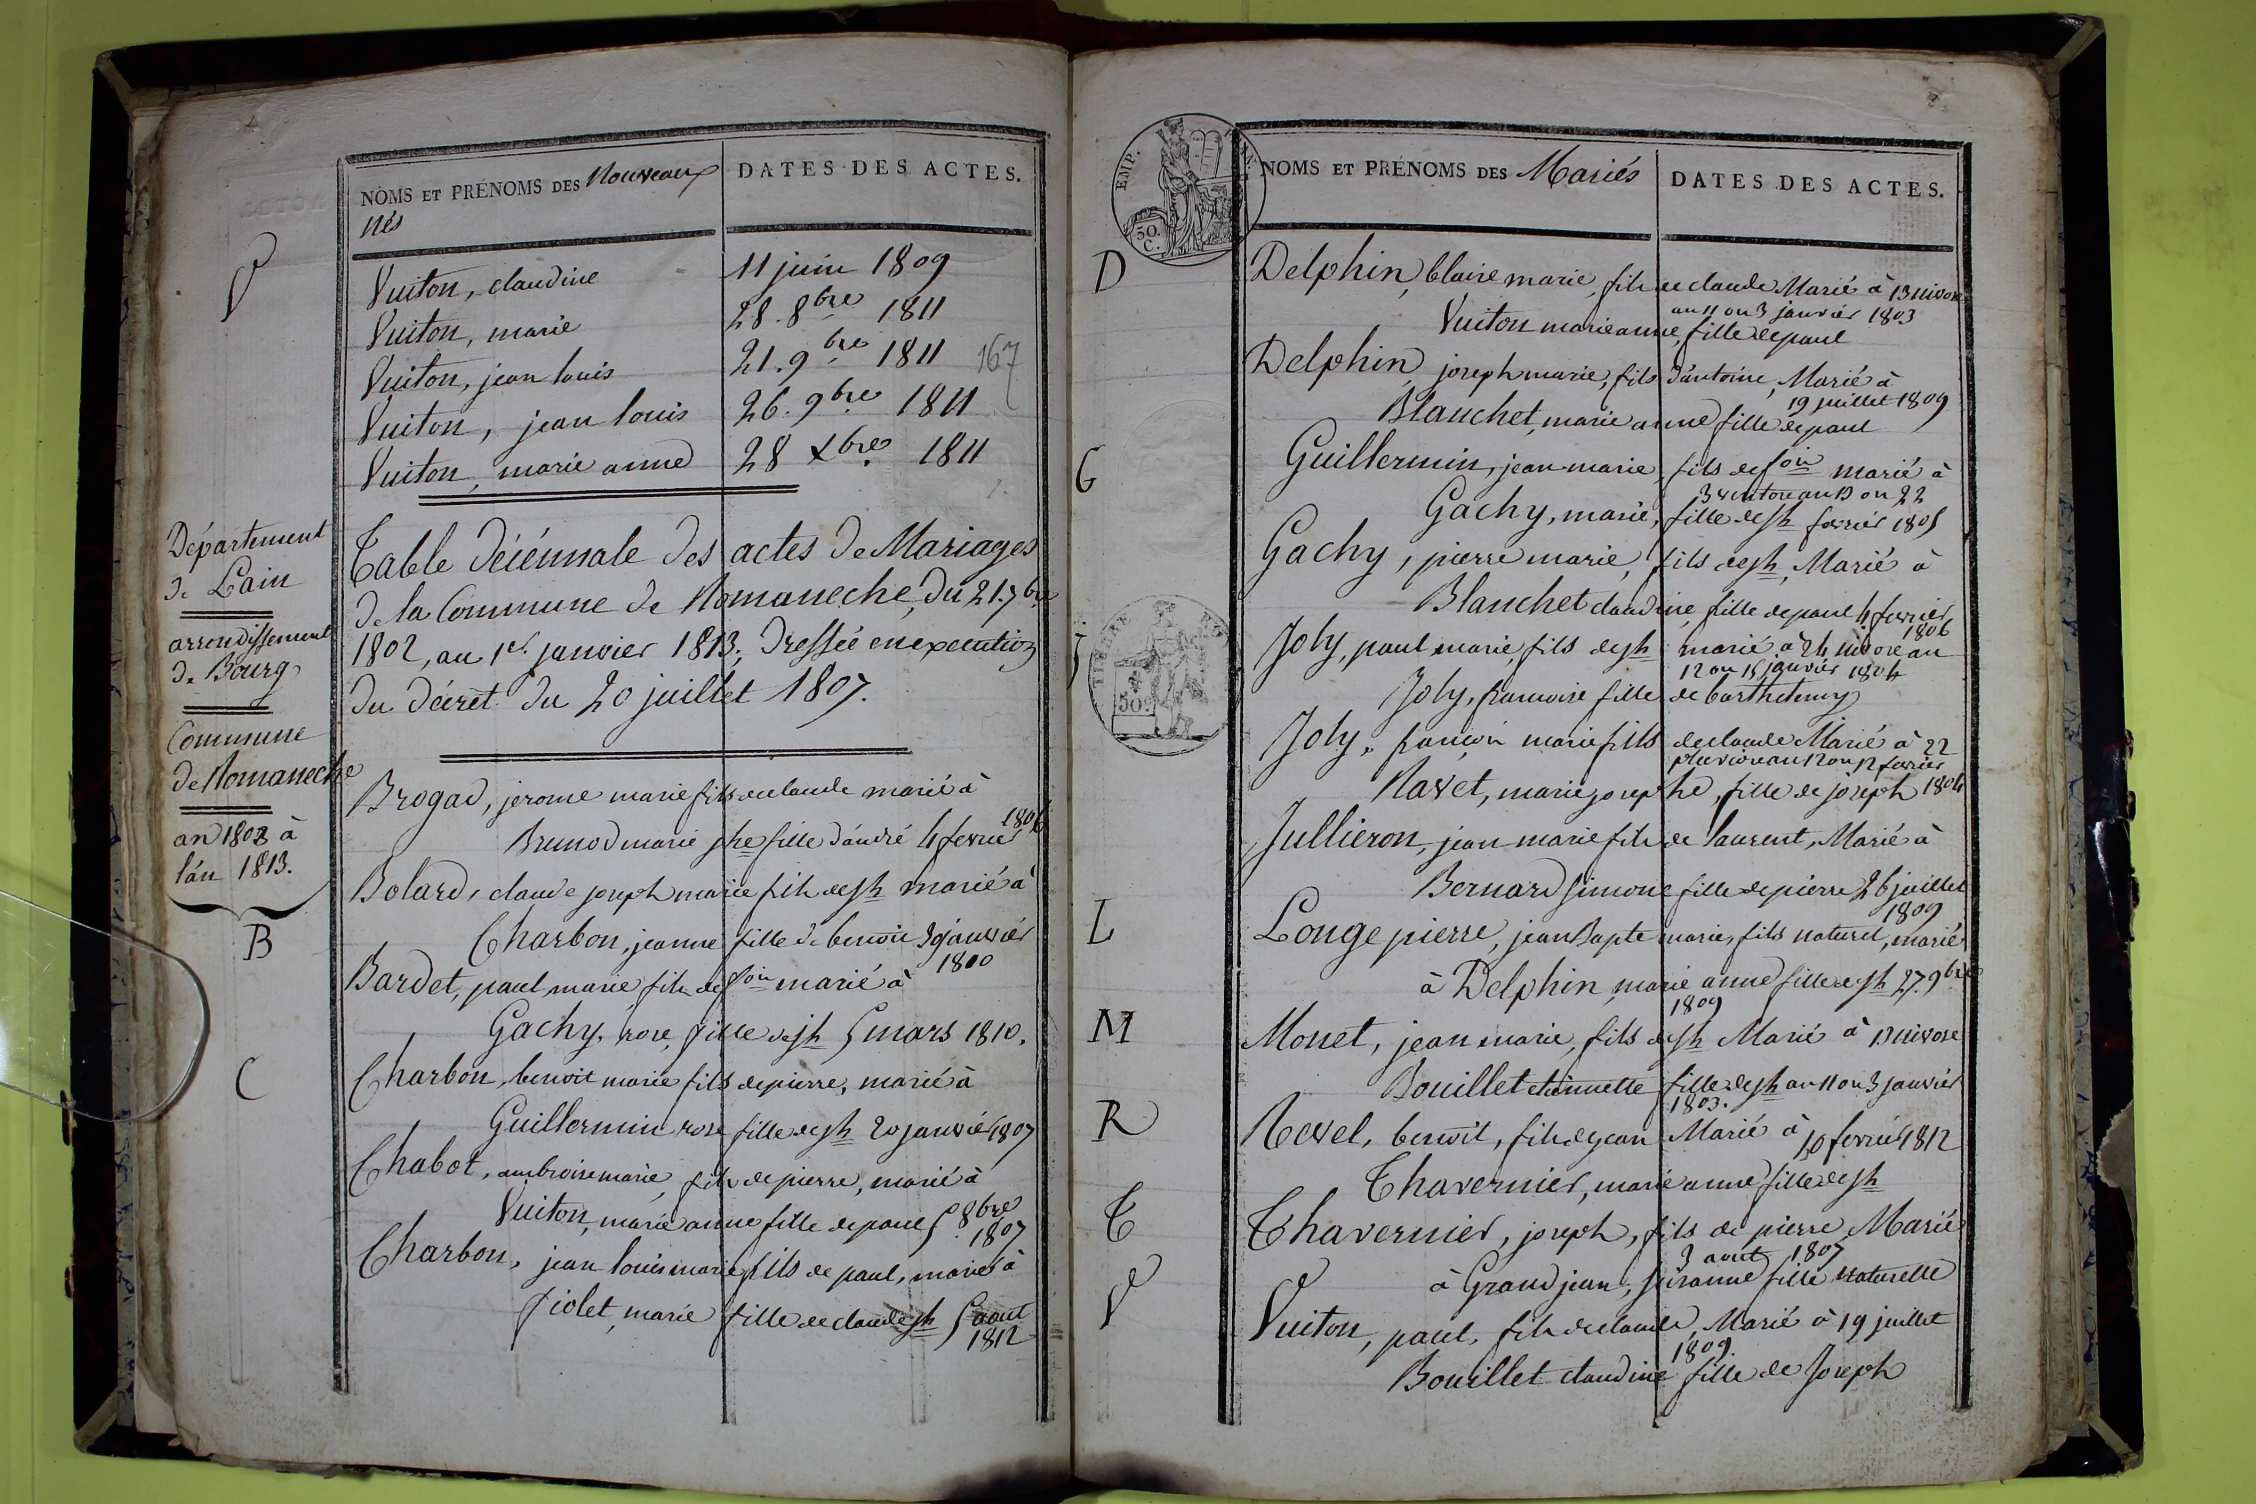 NOMS ET PRÉNOMS DES Nouveaux
nés
DATES DES ACTES.
V
Vuiton, claudine 11 juin 1809
Vuiton, marie 28. 8bre 1811
Vuiton, jean louis 21. 9bre 1811 167
Vuiton, jean louis 26. 9bre 1811
Vuiton, marie anne 28 Xbre 1811
Département
de Lain
arrondissement
de Bourg
Commune
de Romaneche
an 1802 à
l'an 1813.
Table décénnale des actes de Mariages
de la Commune de Romaneche, du 21. 7bre
1802, au 1er janvier 1813, Dressée en execution
du décret du 20 juillet 1807.
Brogad, jerome marie fils de claude marié à
Brunod marie jhe fille d'andré 4 fevrier 1806
B
Bolard, claude joseph marie fils de jh marié à
Charbon, jeanne fille de benoit janvier
1810
Bardet, paul marie fils de foix marié à
Gachy, rose, fille de jh 5 mars 1810.
C
Charbon, benoit marie fils de pierre, marié à
Guillermin rose fille de jh 20 janvier 1807
Chabot, ambroise marie, fils de pierre, marié à
Vuiton, marie anne fille de paul 5 8bre
1807
Charbon, jean louis marie fils de paul, marié à
Fiolet, marie fille de claude jh 5 aout
1812
EMP.
50
C.
NOMS ET PRÉNOMS DES Mariés
DATES DES ACTES.
D
Delphin, blaise marie, fils de claude Marié à 13 nivose
an 11 ou 3 janvier 1803
Vuiton marie anne, fille de paul
Delphin, joseph marie, fils d'antoine, Marié à
19 juillet 1809
Blanchet, marie anne fille de paul
G
Guillermin, jean marie, fils de foix marié à
3 ventose an 13 ou 22
Gachy, marie, fille de jh fevrier 1805
Gachy, pierre marie, fils de jh, Marié à
Blanchet claudine, fille de paul 4 fevrier
1806
J
Joly, paul marie, fils de jh marié à 24 nivose an
12 ou 15 janvier 1804
Joly, francoise fille de barthelemy
Joly, françois marie fils de claude Marié à 22
pluviose an 12 ou 12 fevrier
Navet, marie josephe, fille de joseph 1804
Jullieron, jean marie fils de laurent, Marié à
Bernard Simone fille de pierre 26 juillet
1809
L
Longe pierre, jean Bapte marie, fils naturel, marié
à Delphin marie anne fille de jh 27. 9bre
1809
M
Monet, jean marie, fils de jh Marié à 13 nivose
Bouillet etiennette fille de jh an 11 ou 3 janvier
1803.
R
Revel, benoit, fils de jean Marié à 10 fevrier 1812
Thavernier, marie anne fille de jh
T
Thavernier, joseph, fils de pierre, Marié
3 aout, 1807
à Grandjean, Suzanne fille naturelle
V
Vuiton, paul, fils de claude, Marié à 19 juillet
1809.
Bouillet claudine fille de Joseph